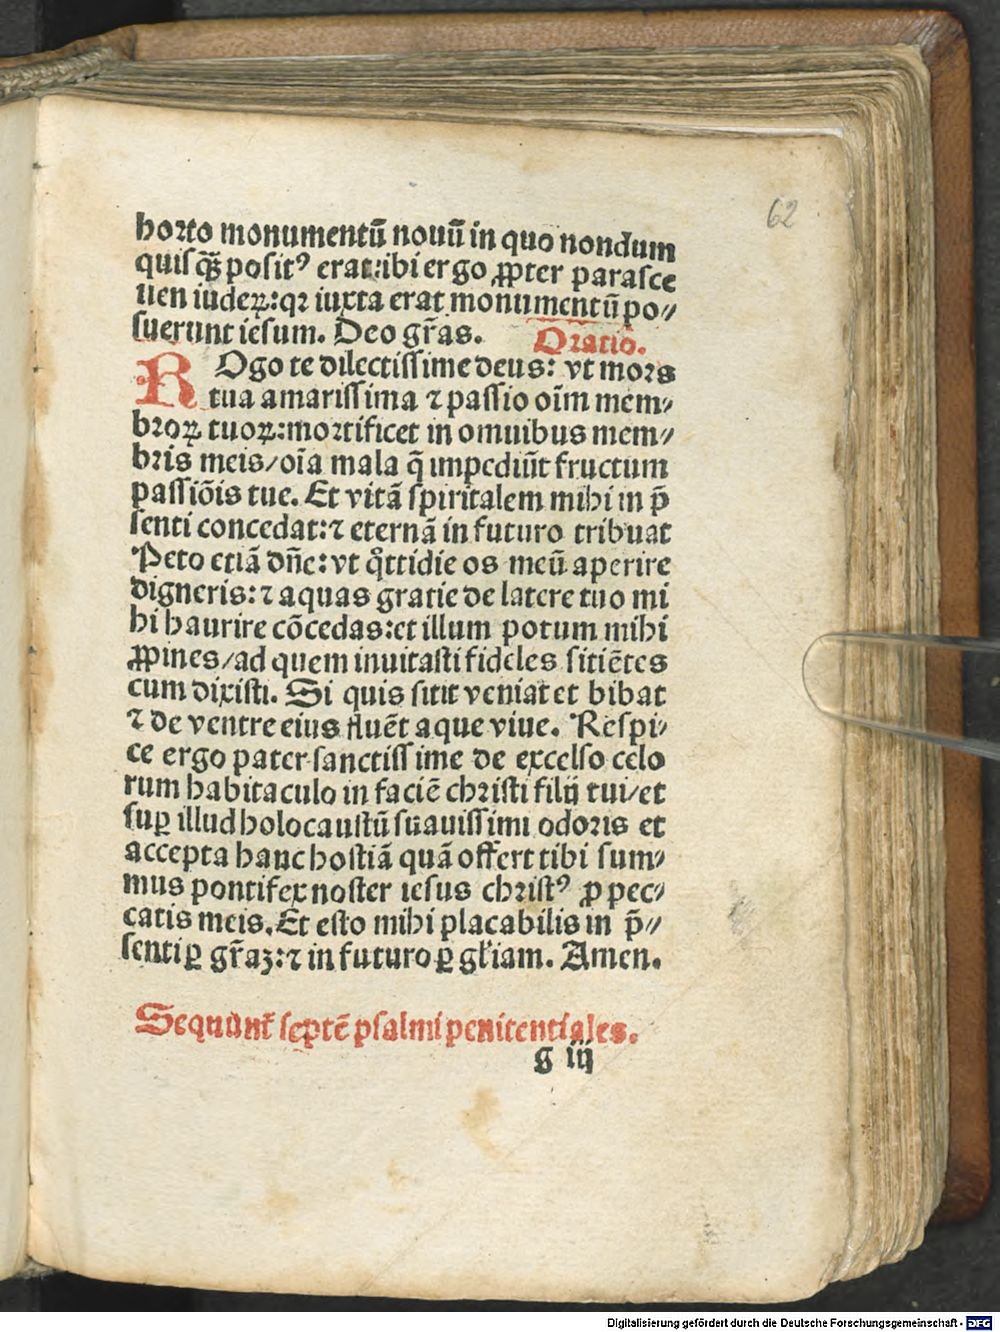 62
horto monumentū nouū in quo nondum
quisq̄ꝫ posit⁹ erat:ibi ergo ꝓpter parasce
uen iudeoꝝ:qꝛ iuxta erat monumentū po⸗
suerunt iesum. Deo gr̄as. Oratio.
ROgo te dilectissime deus: vt mors
tua amarissima ⁊ passio oīm mem⸗
broꝝ tuoꝝ:mortificet in omnibus mem⸗
bris meis/oīa mala q̄ impediūt fructum
passiōis tue. Et vitā spiritalem mihi in p̄
senti concedat:⁊ eternā in futuro tribuat
Peto etiā dn̄e: vt qͦttidie os meū aperire
digneris:⁊ aquas gratie de latere tuo mi
hi haurire cōcedas:et illum potum mihi
ꝓpines/ad quem inuitasti fideles sitiētes
cum dixisti. Si quis sitit veniat et bibat
⁊ de ventre eius fluēt aque viue. Respi⸗
ce ergo pater sanctissime de excelso celo
rum habitaculo in faciē christi filij tui/et
suꝑ illud holocaustū suauissimi odoris et
accepta hanc hostiā quā offert tibi sum⸗
mus pontifex noster iesus christ⁹ ꝓ pec⸗
catis meis. Et esto mihi placabilis in p̄⸗
senti ꝑ gr̄aꝫ:⁊ in futuro ꝑ gl̄iam. Amen.
Sequūnt̄ septē psalmi penitentiales.
g iij
Digitalisierung gefördert durch die Deutsche Forschungsgemeinschaft - DFG